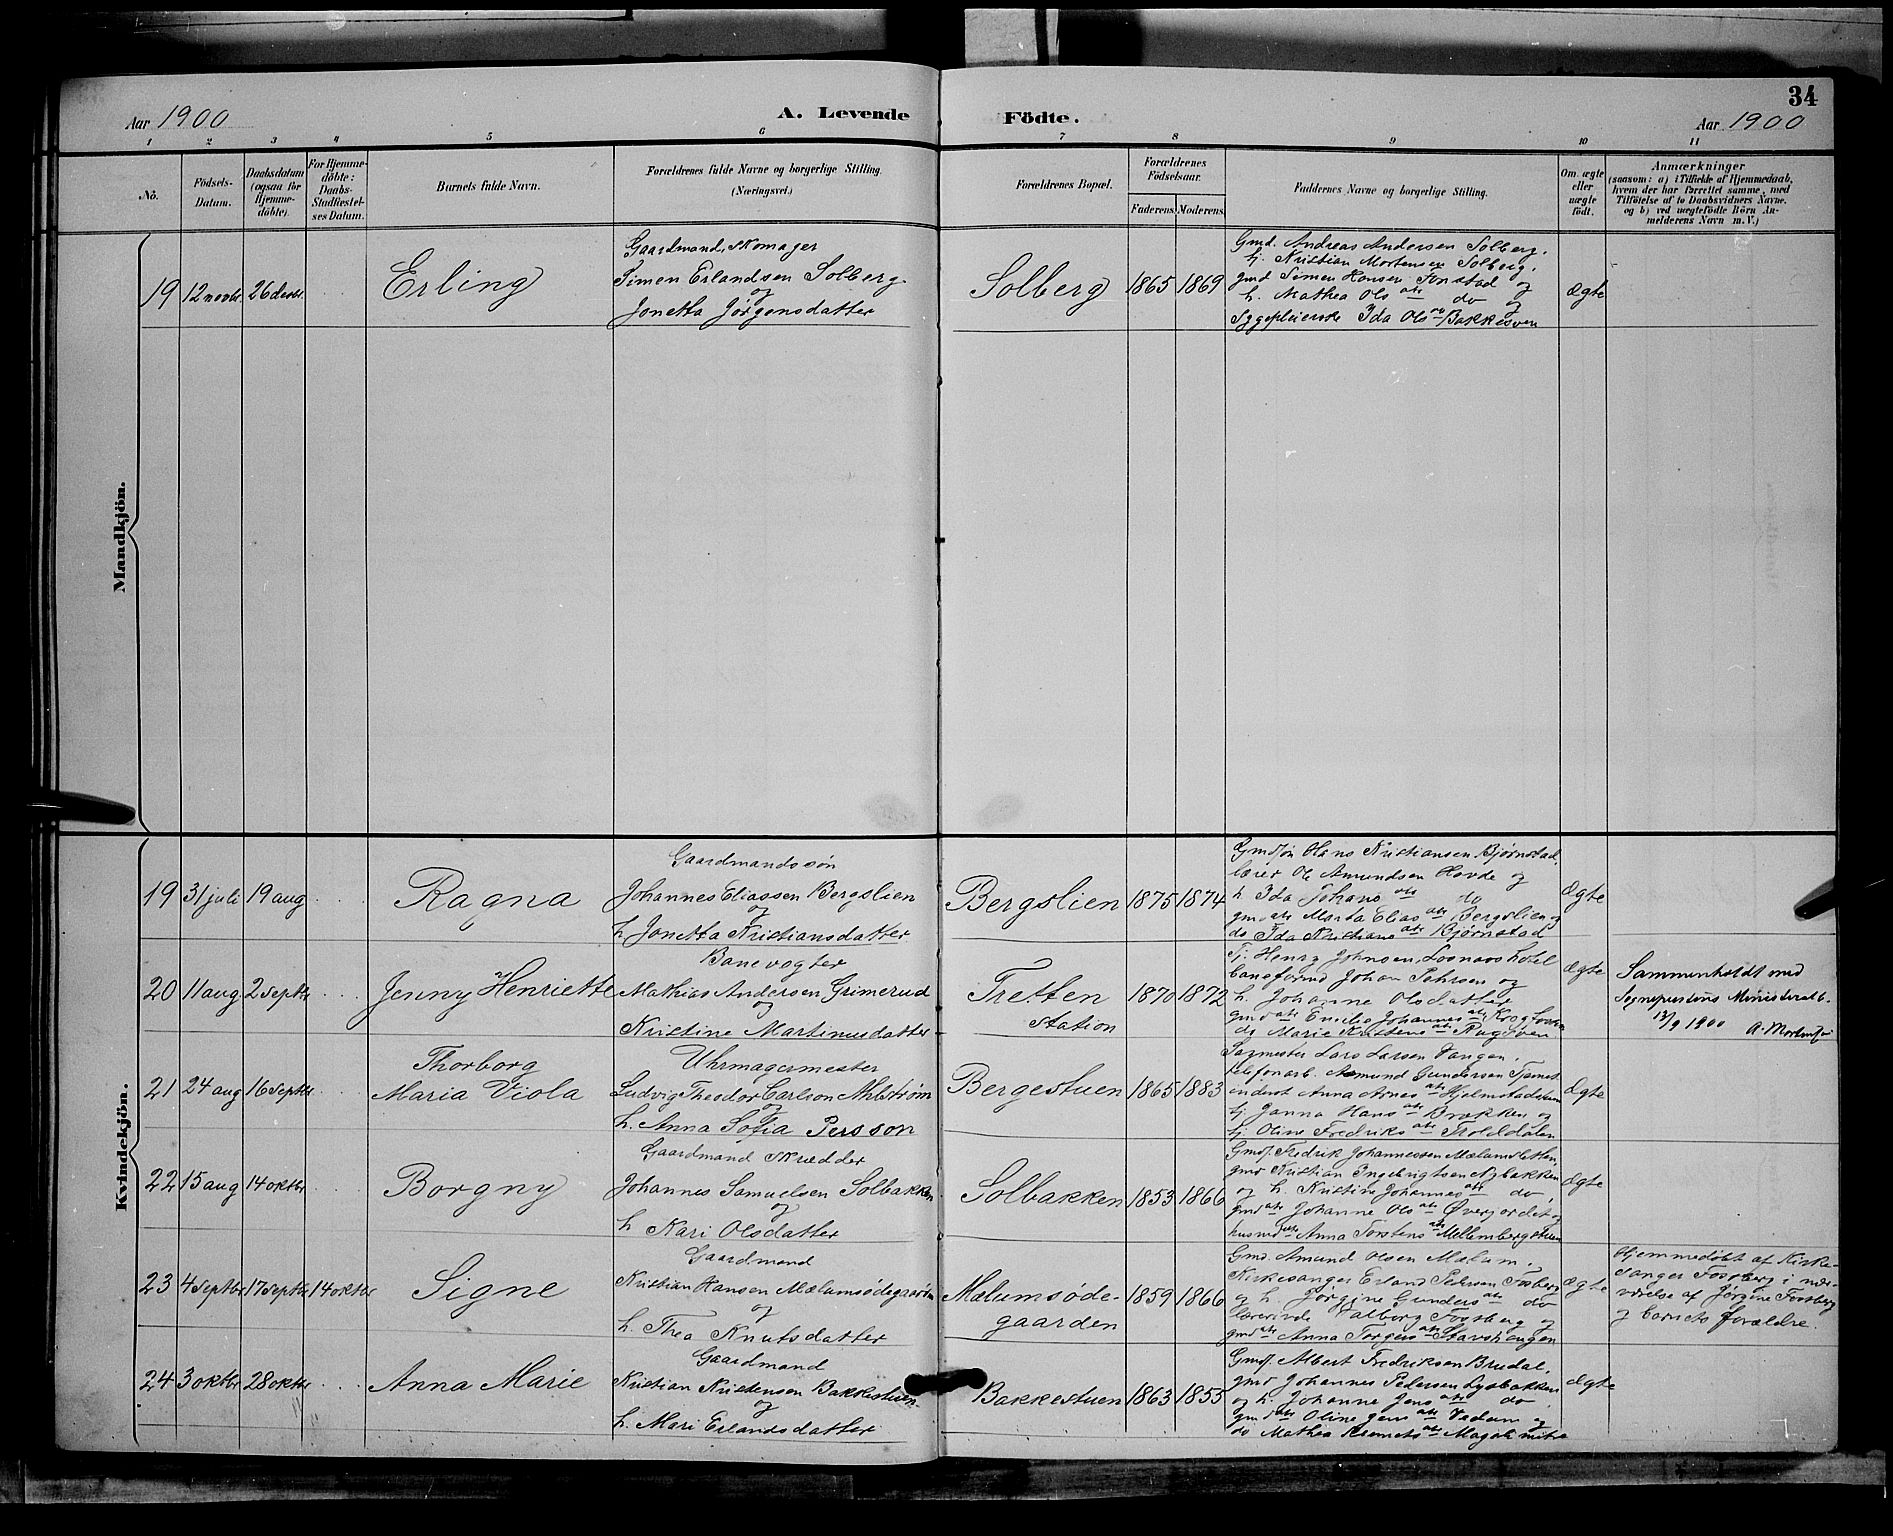 34
Aar 1900 A. Levende Födte. Aar 1900
1 2 3 4 5 6 7 8 9 10 11
Nö.
Födsels-Datum.
Daabsdatum (ogsaa for Hjemme-döbte).
For Hjemme-döbte: Daabs-Stadfæstel-ses Datum.
Barnets fulde Navn.
Forældrenes fulde Navne og borgerlige Stilling. (Næringsvei.)
Forældrenes Bopæl.
Forældrenes Födselsaar.
Faderens. Moderens.
Faddernes Navne og borgerlige Stilling.
Om ægte eller uægte födt.
Anmærkninger
(saasom: a) i Tilfælde af Hjemmedaab,
hvem der har forrettet samme, med
Tilföielse af to Daabsvidners Navne.
og b) ved uægtefödte Börn An-
melderens Navn m. V.)
Mandkjön.
19 12 novbr. 26 decbr. Erling
Gaardmand, Skomager
Simen Erlandsen Solberg
og
Jonetta Jørgensdatter
Solberg 1865 1869
Gmd. Andreas Andersen Solberg,
Kristian Mortensen Solberg,
gmd Simen Hansen og
h. Mathea Ols dtr do og
Sygepleierske Ida Ols
Ægte
Kvindekjön.
19 31 juli 19 aug Ragna
Gaardmandssøn
Johannes Eliassen Bergslien
og
h. Jonetta Kristiansdatter
Bergslien 1875 1874
Gmdsøn Hans Kristiansen Bjørnstad,
lærer Ole Amundsen Hovde og
h. Ida Johans dtr do
gmd dtr Marta Elias dtr Bergslien og
do Ida Kristians dtr Bjørnstad
Ægte
20 11 aug. 2 septbr Jenny Henriette
Banevogter
Mathias Andersen Grimerud
og
Kristine Martinusdatter
Tretten
station
1870 1872
Tj. Henry Johnsen, Losnaos hotel
baneformd Johan Pehrsen og
h. Johanne Olsdatter
gmd dtr Johannes dtr
do Marie Kristens dtr
Ægte
Sammenholdt med
Sognepræstens Ministerialb.
13/9 1900
21 24 aug 16 septbr Thorborg
Maria Viola
Uhrmagermester
Ludvig Theodor Carlson Ahlstrøm
og
h. Anna Sofia Persson
Bergestuen 1865 1883
Sagmester Lars Larsen Vangen,
telefonarb. Asmund Gundersen
inderst Anna Arnes dtr Hjelmstadstuen
tj. Janna Hans dtr Brækken og
tj. Oline Fredriks dtr Trolddalen
Ægte
22 15 aug 14 oktbr Borgny
Gaardmand Skrædder
Johannes Samuelsen Solbakken
og
h. Kari Olsdatter
Solbakken 1853 1866
Gmds. Fredrik Johannessen Mælumsletten,
gmd Kristian Ingebrigtsen Nybakken
og h. Kristine Johannes dtr do,
gmd dtr Johanne Ols dtr Øverjordet og
husmd dtr Anna Torstens dtr Mellembergstuen
Ægte
23 4 septbr 17 septbr 14 oktbr Signe
Gaardmand
Kristian Hansen Mælumsødegaarden
og
h. Thea Knutsdatter
Mælumsøde-
gaarden
1859 1866
Gmd. Amund Olsen Mælum,
Kirkesanger Erland Pedersen Fossberg
og h. Jørgine Gunders dtr do
lærerinde Valborg Fossberg og
gmd dtr Anna Torgers dtr Stavshaugen
ægte
Hjemmedøbt af Kirke-
sanger Fossberg i nær-
værelse af Jørgine Fossberg
og barnets forældre.
24 3 oktbr 28 oktbr Anna Marie
Gaardmand
Kristian Kristensen Bakkestuen
og
h. Mari Erlandsdatter
Bakkestuen 1863 1855
Gmds. Albert Fredriksen Brudal,
gmd Johannes Pedersen Lysbakken
og h. Johanne Jens dtr do,
gmd dtr Oline Jens dtr og
do Mathea
Ægte